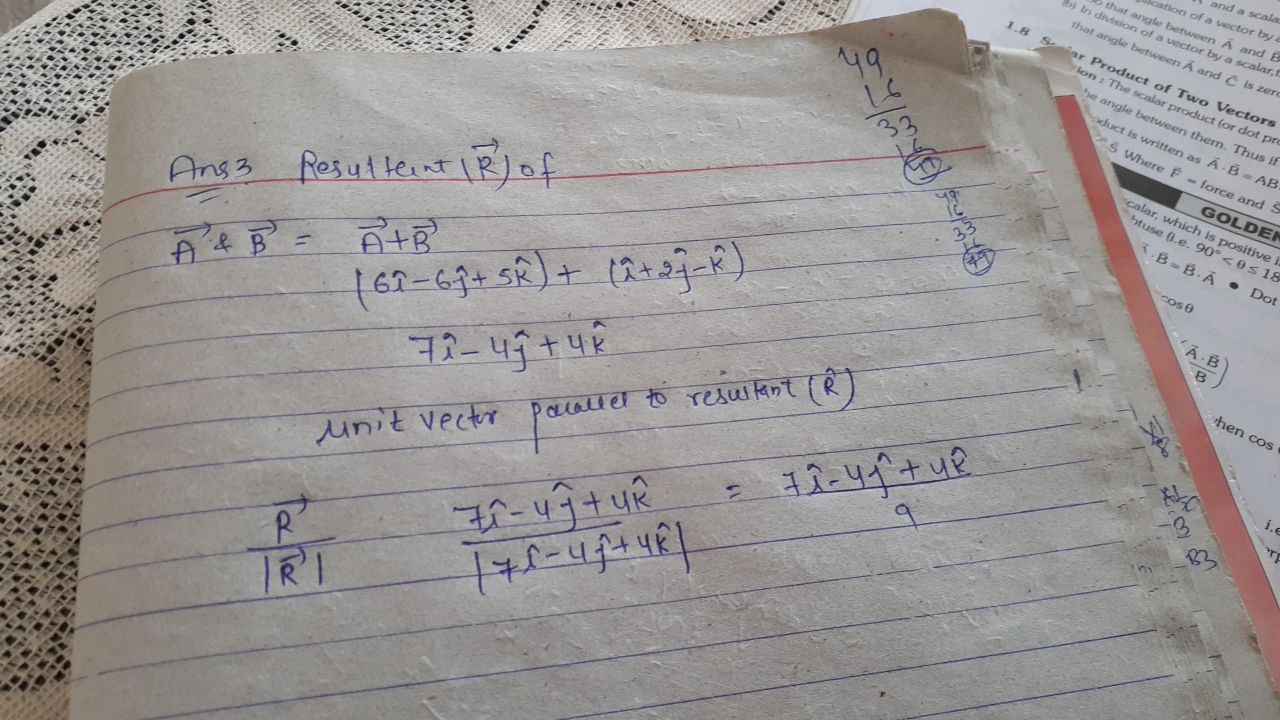 Ans 3 Resultent (R⃗) of
A⃗ & B⃗ = A⃗+B⃗
(6î-6ĵ+5k̂) + (î+2ĵ-k̂)
7î-4ĵ+4k̂
unit vector parallel to resultant (R̂)
R⃗ / |R⃗| 7î-4ĵ+4k̂ / |7î-4ĵ+4k̂| = 7î-4ĵ+4k̂ / 9
49
16
33
and a scala
lication of a vector by
so that angle between A⃗ and B⃗
(b) In division of a vector by a scalar,
that angle between A⃗ and C⃗ is zero
1.8 Product of Two Vectors
ion : The scalar product (or dot pr
he angle between them. Thus if
oduct is written as A⃗ . B⃗ = AB
S⃗ Where F⃗ = force and S⃗
GOLDEN
calar, which is positive i
btuse (i.e. 90° < θ ≤ 18
. B⃗ = B⃗ . A⃗ • Dot
cosθ
(A⃗ . B⃗ / B)
when cos
i.e
B3